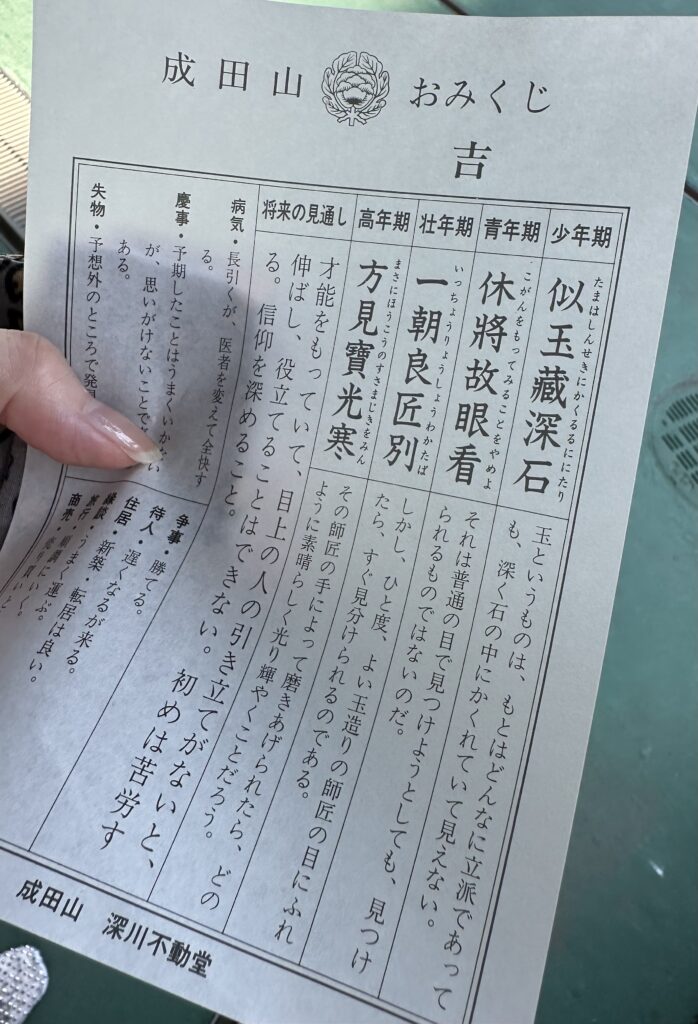 成田山 おみくじ
吉
少年期
似玉藏深石
たまはしんせきにかくるるににたり
玉というものは、もとはどんなに立派であって
も、深く石の中にかくれていて見えない。
青年期
休將故眼看
こがんをもってみることをやめよ
それは普通の目で見つけようとしても、見つけ
られるものではないのだ。
壮年期
一朝良匠別
いっちょうりょうしょうわかたば
しかし、ひと度、よい玉造りの師匠の目にふれ
たら、すぐ見分けられるのである。
高年期
方見寶光寒
まさにほうこうのすさまじきをみん
その師匠の手によって磨きあげられたら、どの
ように素晴らしく光り輝やくことだろう。
将来の見通し
才能をもっていて、目上の人の引き立てがないと、
伸ばし、役立てることはできない。初めは苦労す
る。信仰を深めること。
病気・長引くが、医者を変えて全快す
る。
慶事・予期したことはうまくいかない
が、思いがけないことで
ある。
失物・予想外のところで発見
争事・勝てる。
待人・遅くなるが来る。
住居・新築・転居は良い。
縁談・うまく運ぶ。
旅行・順調にいく。
商売・売り買い
成田山 深川不動堂